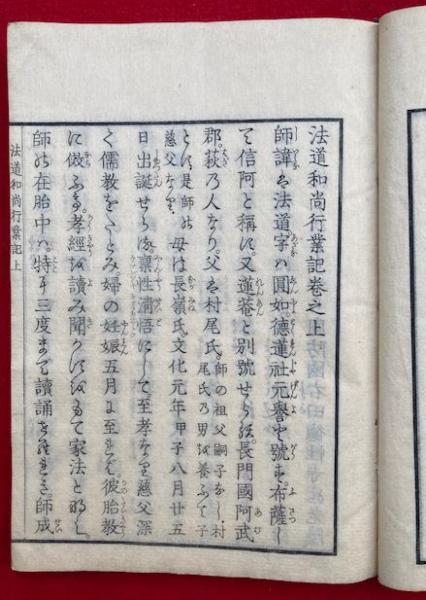 法道和尚行業記卷之上
師諱は法道字ハ圓如德蓮社元譽と號す布薩し
て信阿と稱す又蓮菴と別號せらる長門國阿武
郡萩乃人なり父は村尾氏師の祖父嗣子なし村
尾氏乃男を養ふて子
とす是師の
慈父なり母は長嶺氏文化元年甲子八月廿五
日出誕せらる稟性清悟にして至孝なり慈父深
く儒教をたとみ婦の妊娠五月に至れば彼胎教
に倣ふる孝經を讀み聞かすをもて家法と
師の在胎中ハ特に三度まで讀誦されき師成
法道和尚行業記上